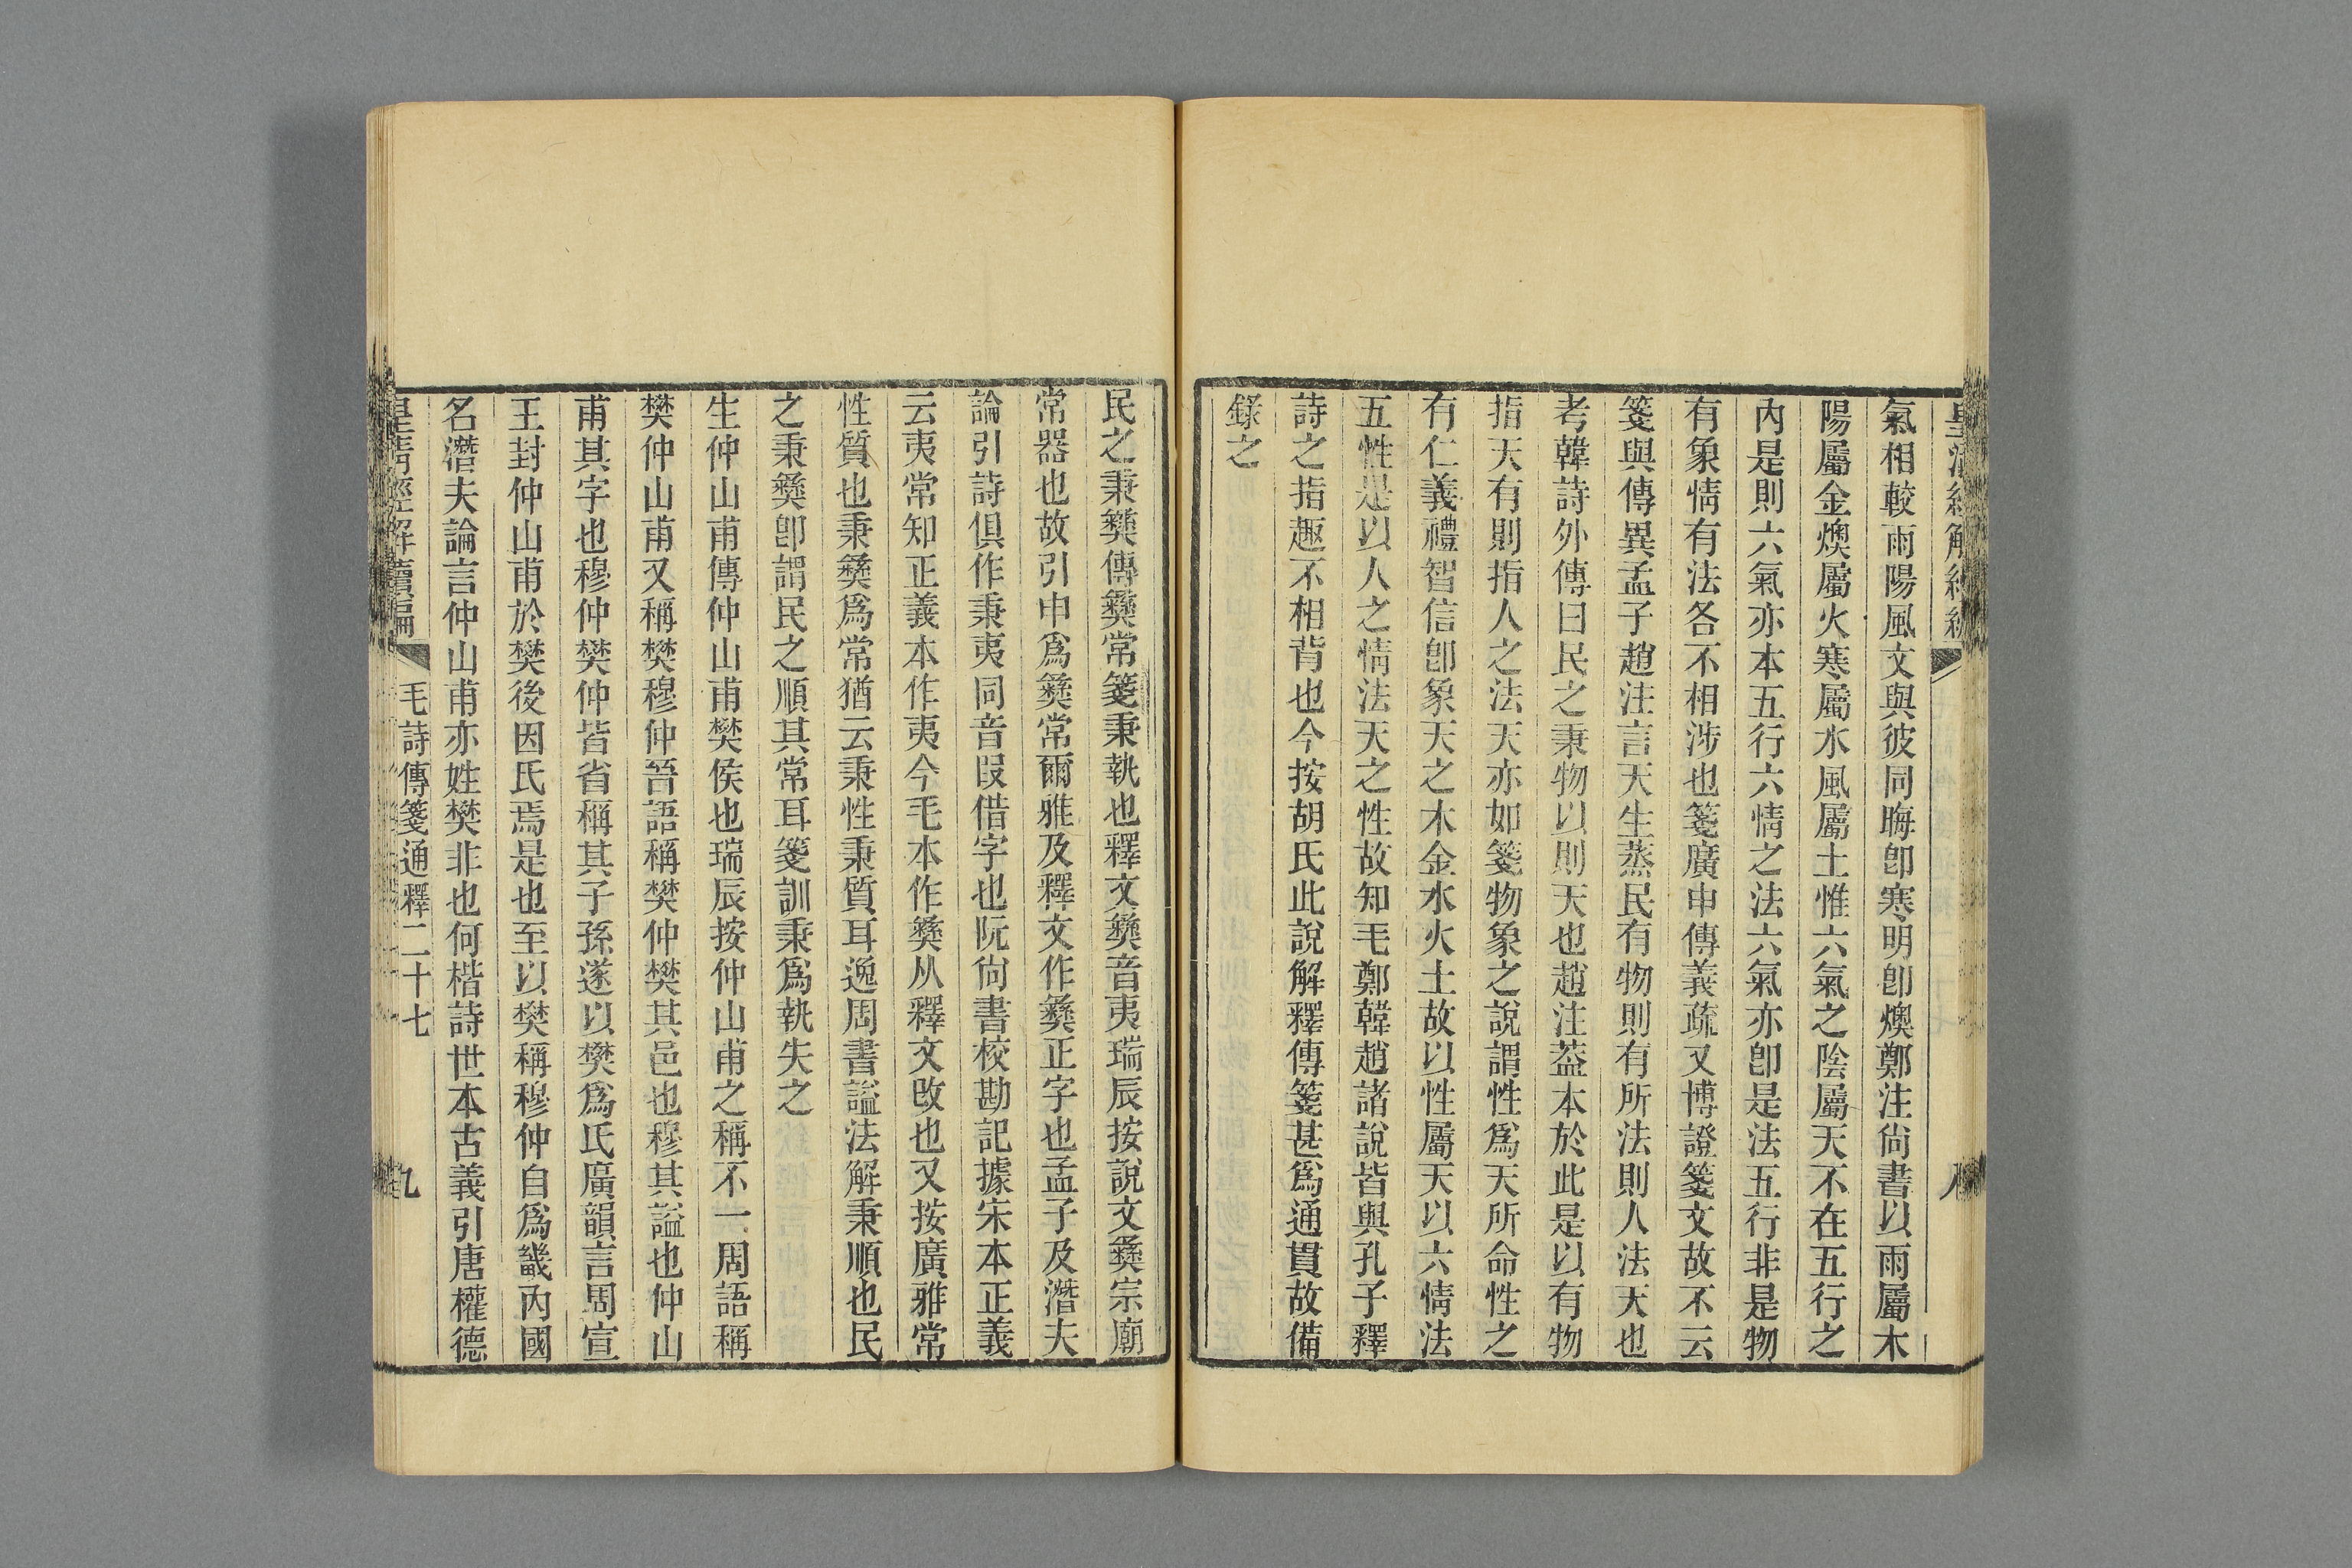 氣相較雨陽風文與彼同晦卽寒明卽燠鄭注尙書以雨屬木
陽屬金燠屬火寒屬水風屬土惟六氣之陰屬天不在五行之
內是則六氣亦本五行六情之法六氣亦卽是法五行非是物
有象情有法各不相涉也箋廣申傳義疏又博證箋文故不云
箋與傳異孟子趙注言天生蒸民有物則有所法則人法天也
考韓詩外傳曰民之秉物以則天也趙注葢本於此是以有物
指天有則指人之法天亦如箋物象之說謂性爲天所命性之
有仁義禮智信卽象天之木金水火土故以性屬天以六情法
五性是以人之情法天之性故知毛鄭韓趙諸說皆與孔子釋
詩之指趣不相背也今按胡氏此說解釋傳箋甚爲通貫故備
錄之
民之秉彝傳彝常箋秉執也釋文彝音夷瑞辰按說文彝宗廟
常器也故引申爲彝常爾雅及釋文作彝正字也孟子及潛夫
論引詩俱作秉夷同音叚借字也阮尙書校勘記據宋本正義
云夷常知正義本作夷今毛本作彝从釋文改也又按廣雅常
性質也秉彝爲常猶云秉性秉質耳逸周書謚法解秉順也民
之秉彝卽謂民之順其常耳箋訓秉爲執失之
生仲山甫傳仲山甫樊侯也瑞辰按仲山甫之稱不一周語稱
樊仲山甫又稱樊穆仲晉語稱樊仲樊其邑也穆其謚也仲山
甫其字也穆仲樊仲皆省稱其子孫遂以樊爲氏廣韻言周宣
王封仲山甫於樊後因氏焉是也至以樊稱穆仲自爲畿內國
名潛夫論言仲山甫亦姓樊非也何楷詩世本古義引唐權德
皇清經解續編
毛詩傳箋通釋二十七
九